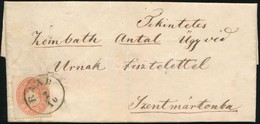 Tekintetes
Zömbath Antal Ügyvéd
Urnak tisztelettel
Szentmártonba
RAAB